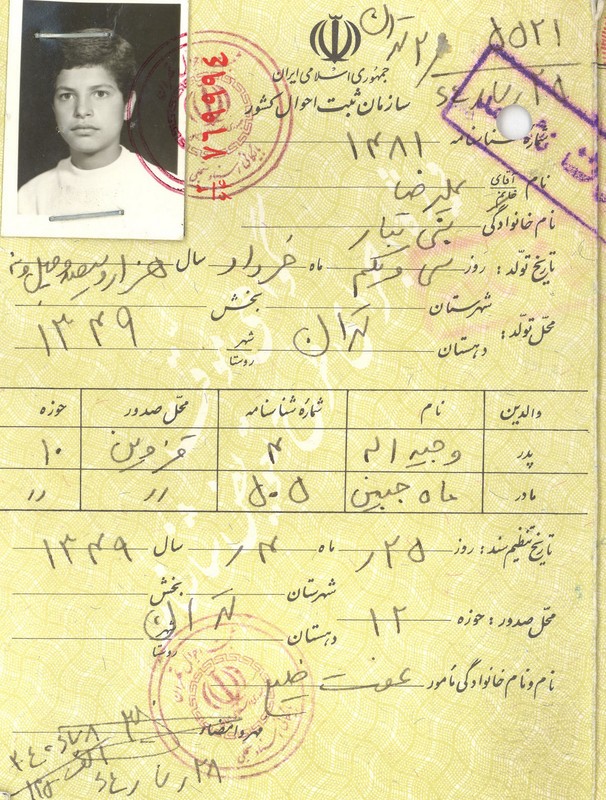 ۵۵۲۱
۲ تهران
جمهوری اسلامی ایران
سازمان ثبت احوال کشور
۴۹۹۹۶۷
شماره شناسنامه ۱۴۸۱
نام آقای علیرضا
نام خانوادگی بنی تبار
تاریخ تولد: روز سی و یکم ماه خرداد سال هزار و سیصد و چهل و نه
محل تولد: شهرستان بخش ۱۳۴۹
دهستان تهران شهر روستا
والدین نام شماره شناسنامه محل صدور حوزه
پدر وجیه اله ۴ قزوین ۱۰
مادر ماه جبین ۵۰۵ رر رر
تاریخ تنظیم سند: روز ۲۵ر ماه ۴ر سال ۱۳۴۹
شهرستان بخش
محل صدور: حوزه ۱۲ دهستان تهران شهر روستا
نام و نام خانوادگی مأمور عفت
مهر و امضاء